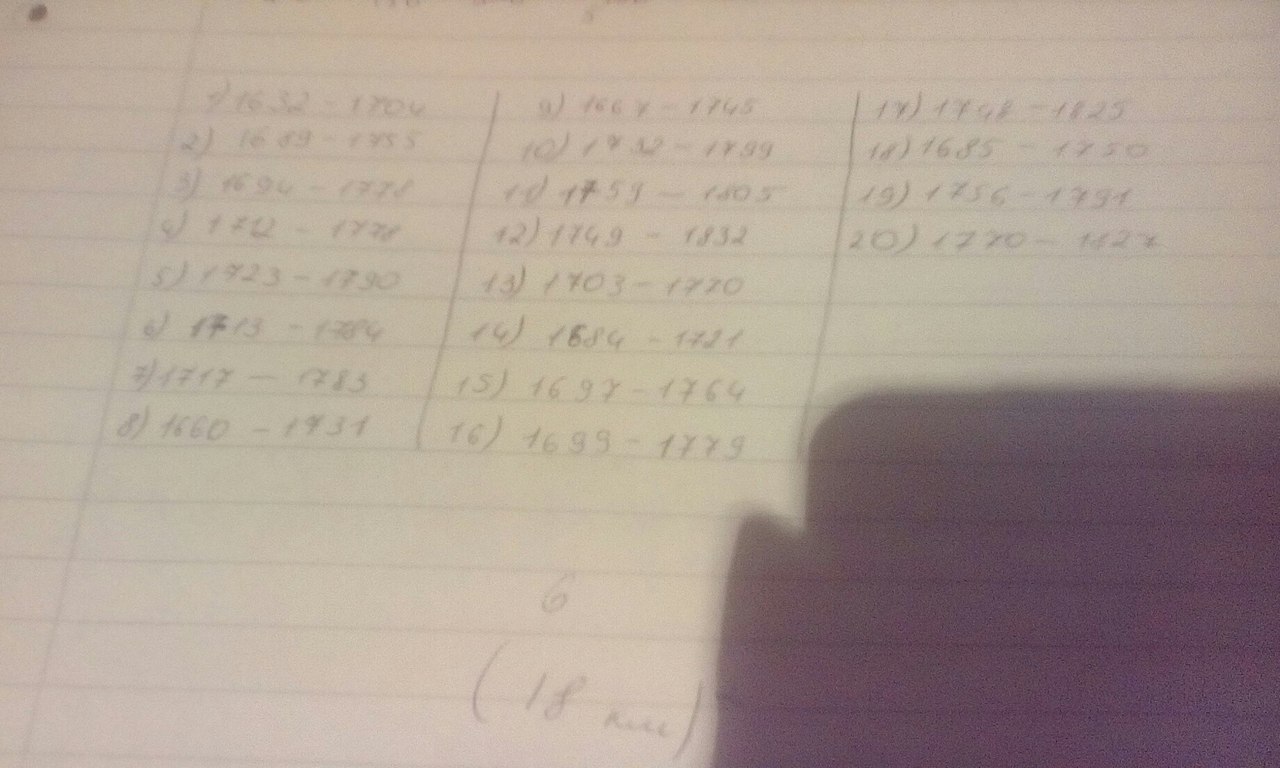 1) 1632 - 1704
2) 1689 - 1755
3) 1694 - 1778
4) 1712 - 1778
5) 1723 - 1790
6) 1713 - 1784
7) 1717 - 1783
8) 1660 - 1731
9) 1667 - 1745
10) 1732 - 1799
11) 1759 - 1805
12) 1749 - 1832
13) 1703 - 1770
14) 1684 - 1721
15) 1697 - 1764
16) 1699 - 1779
17) 1748 - 1825
18) 1685 - 1750
19) 1756 - 1791
20) 1770 - 1127
6
(18